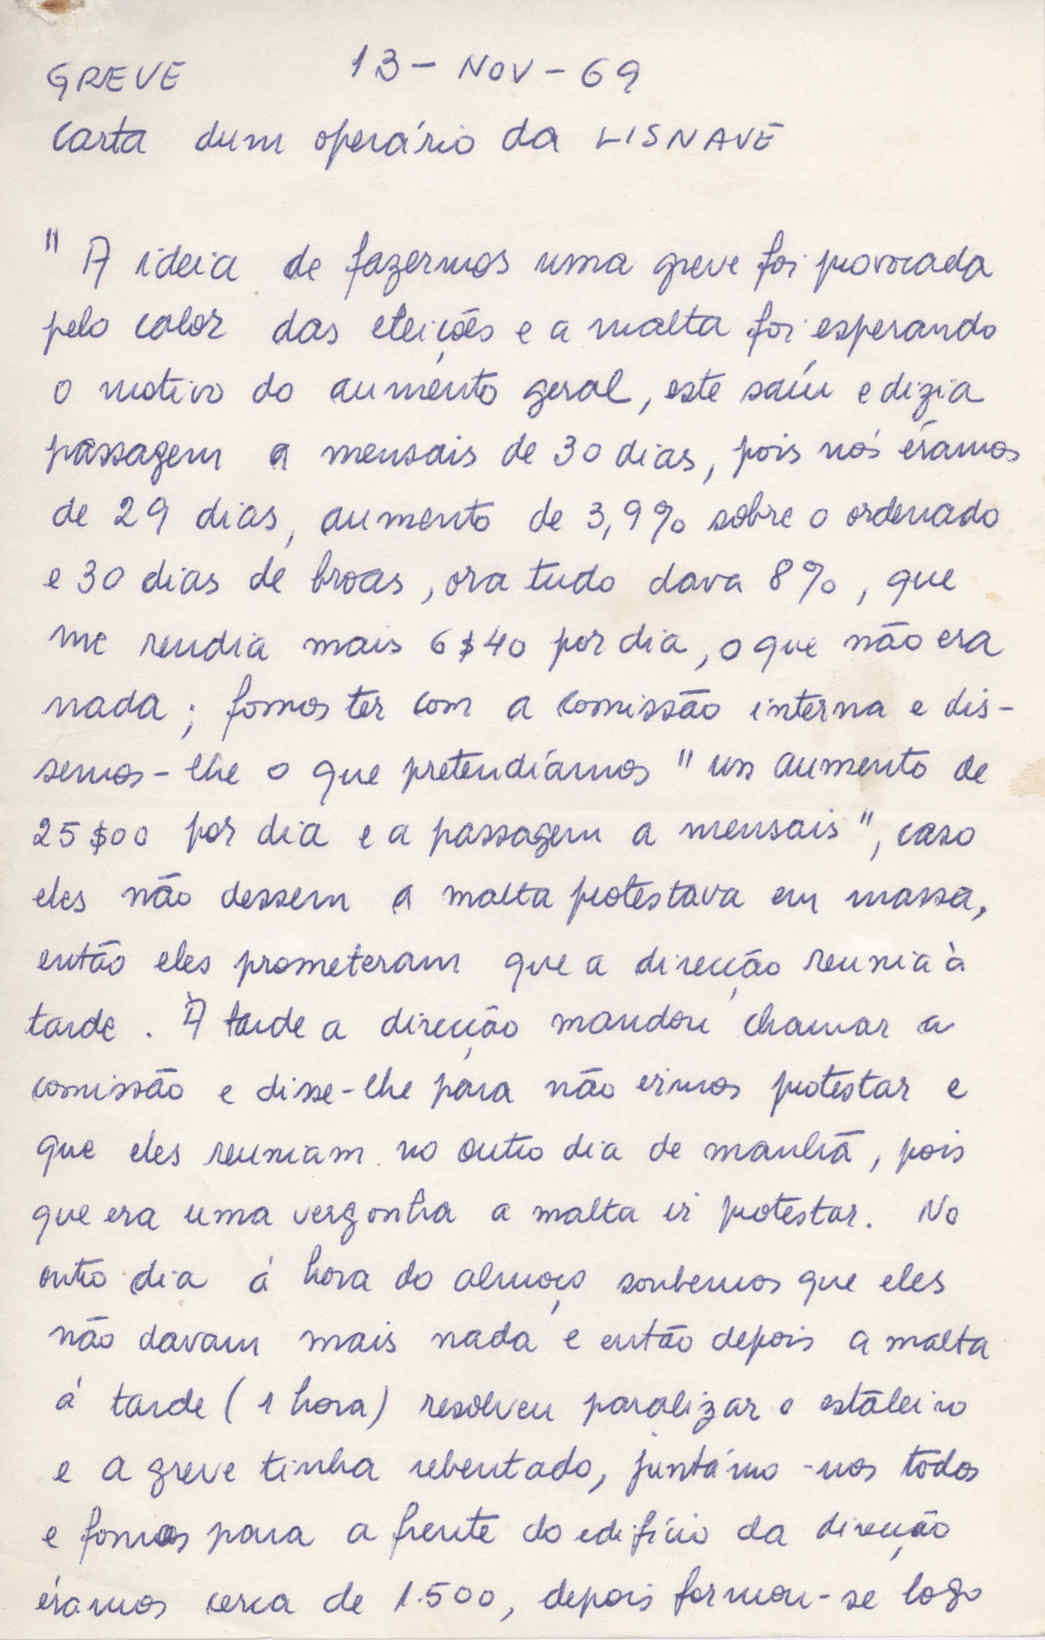 GREVE 13 - NOV - 69
Carta dum operário da LISNAVE
" A ideia de fazermos uma greve foi provocada
pelo calor das eleições e a malta foi esperando
o motivo do aumento geral, este saíu e dizia
passagem a mensais de 30 dias, pois nós éramos
de 29 dias, aumento de 3,9% sobre o ordenado
e 30 dias de broas, ora tudo dava 8%, que
me rendia mais 6$40 por dia, o que não era
nada; fomos ter com a comissão interna e dis-
semos-lhe o que pretendíamos " um aumento de
25$00 por dia e a passagem a mensais", caso
eles não dessem a malta protestava em massa,
então eles prometeram que a direcção reunia à
tarde. À tarde a direcção mandou chamar a
comissão e disse-lhe para não irmos protestar e
que eles reuniam no outro dia de manhã, pois
que era uma vergonha a malta ir protestar. No
outro dia á hora do almoço soubemos que eles
não davam mais nada e então depois a malta
á tarde (1 hora) resolveu paralizar o estaleiro
e a greve tinha rebentado, juntámo-nos todos
e fomos para a frente do edifício da direcção
éramos cerca de 1.500, depois formou-se logo